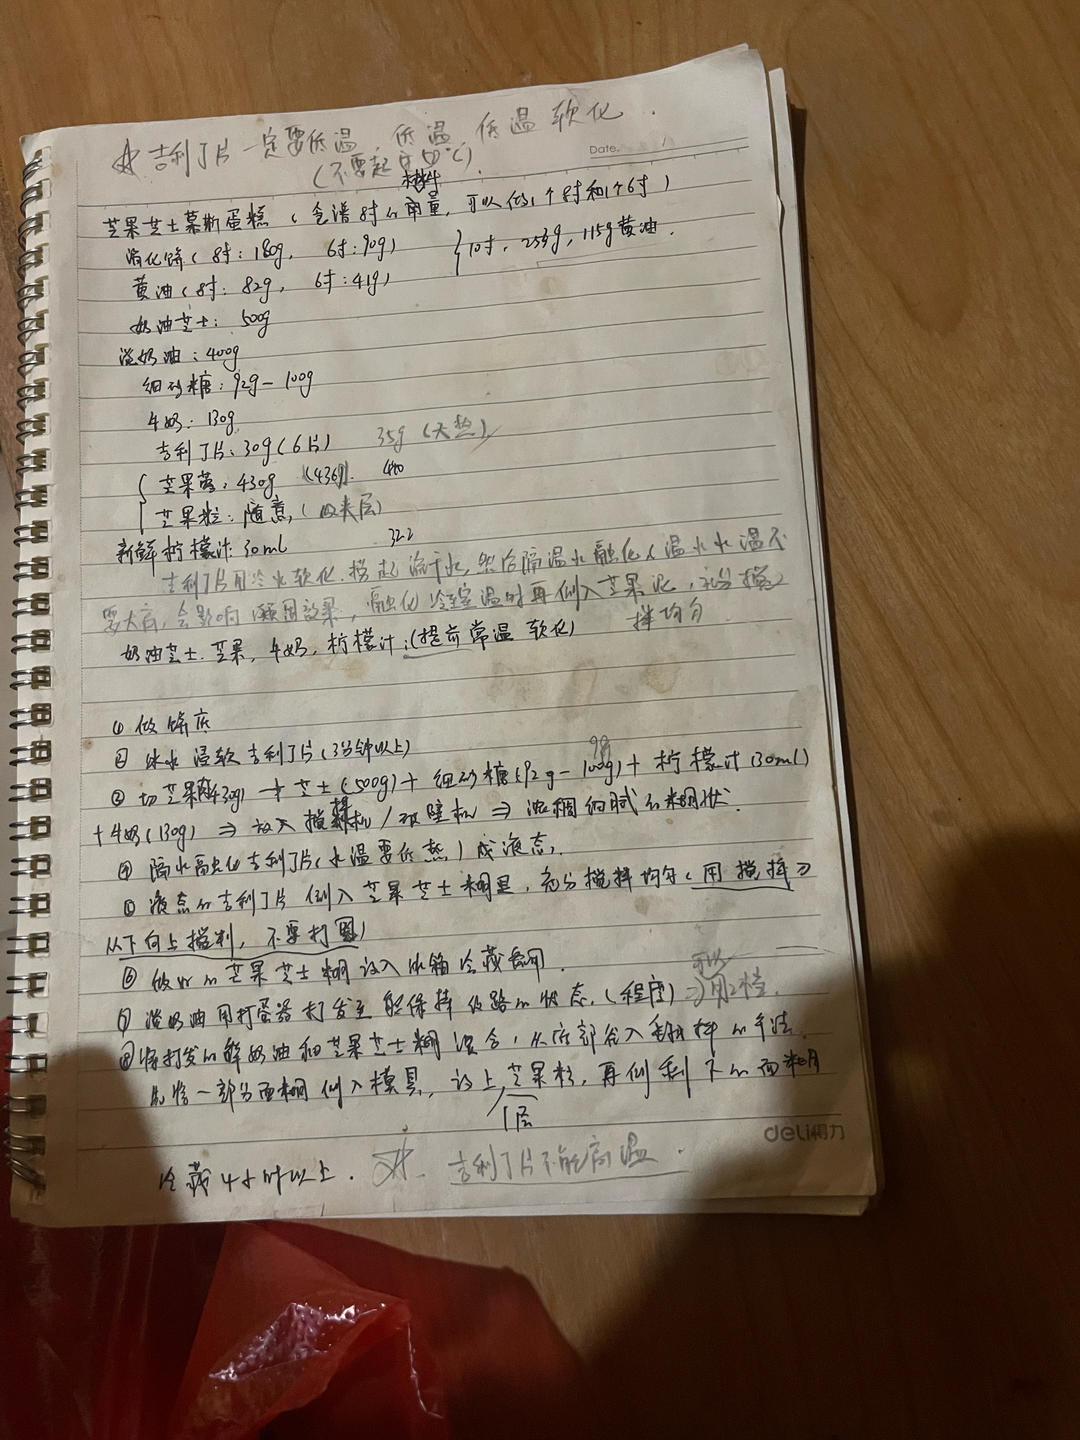 ☆吉利丁片一定要低温 低温 低温 软化.
(不要起 50℃).
Date.
材料
芒果芝士慕斯蛋糕 (食谱8寸的用量, 可以做1个8寸和1个6寸)
消化饼(8寸: 180g, 6寸: 90g) } 10寸. 253g, 115g黄油.
黄油(8寸: 82g, 6寸: 41g)
奶油芝士: 500g
淡奶油: 400g
细砂糖: 92g-100g
牛奶: 130g
吉利丁片: 30g(6片) 35g (天热)
芒果蓉: 430g (436g). 440
芒果粒: 随意, (放夹层)
新鲜柠檬汁: 30ml 322
吉利丁片用冷水软化. 捞起沥干水, 然后隔温水融化(温水水温不
要太高, 会影响凝固效果, 融化冷至室温时再倒入芒果泥, 充分搅
拌均匀
奶油芝士. 芒果, 牛奶, 柠檬汁: (提前常温软化)
① 做饼底
② 冰水浸软吉利丁片(3分钟以上)
98
③ 切芒果(430g) → 芝士(500g) + 细砂糖(92g-100g) + 柠檬汁(30ml)
+ 牛奶(130g) ⇒ 放入搅拌机/破壁机 ⇒ 浓稠细腻的糊状.
④ 隔水融化吉利丁片(水温要低热)成液态.
⑤ 液态的吉利丁片倒入芒果芝士糊里, 充分搅拌均匀(用搅拌刀
从下向上搅判, 不要打圈)
⑥ 做好的芒果芝士糊放入冰箱冷藏备用.
可以
⑦ 淡奶油用打蛋器打发至能保持纹路的状态. (程度) ⇒ 用2档.
⑧ 将打发的鲜奶油和芒果芝士糊混合, 从底部兜入翻拌的手法.
先将一部分面糊倒入模具, 放上芒果粒, 再倒剩下的面糊
1层
deli得力
冷藏4小时以上. ☆. 吉利丁片不能高温.